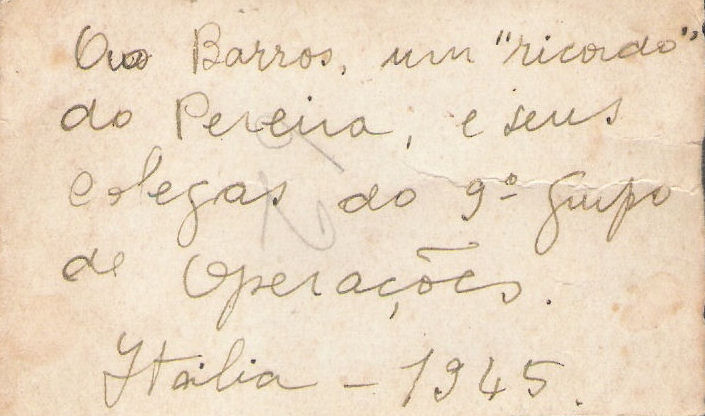 Ao Barros, um "ricordo"
do Pereira, e seus
colegas do 9º Grupo
de Operações.
Itália - 1945.